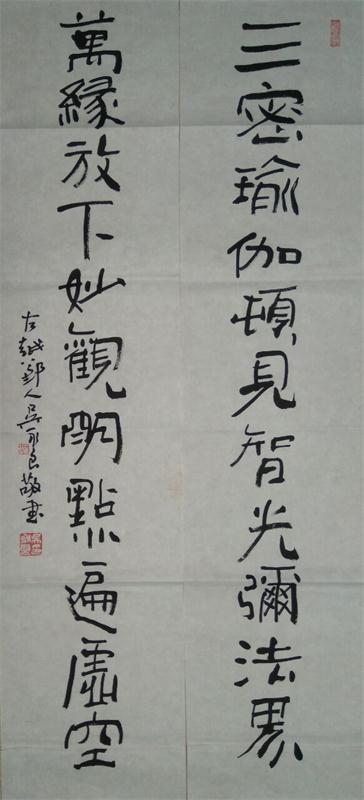 三密瑜伽頓見智光彌法界
萬緣放下妙觀明點遍虛空
古越鄞人吳永良敬書